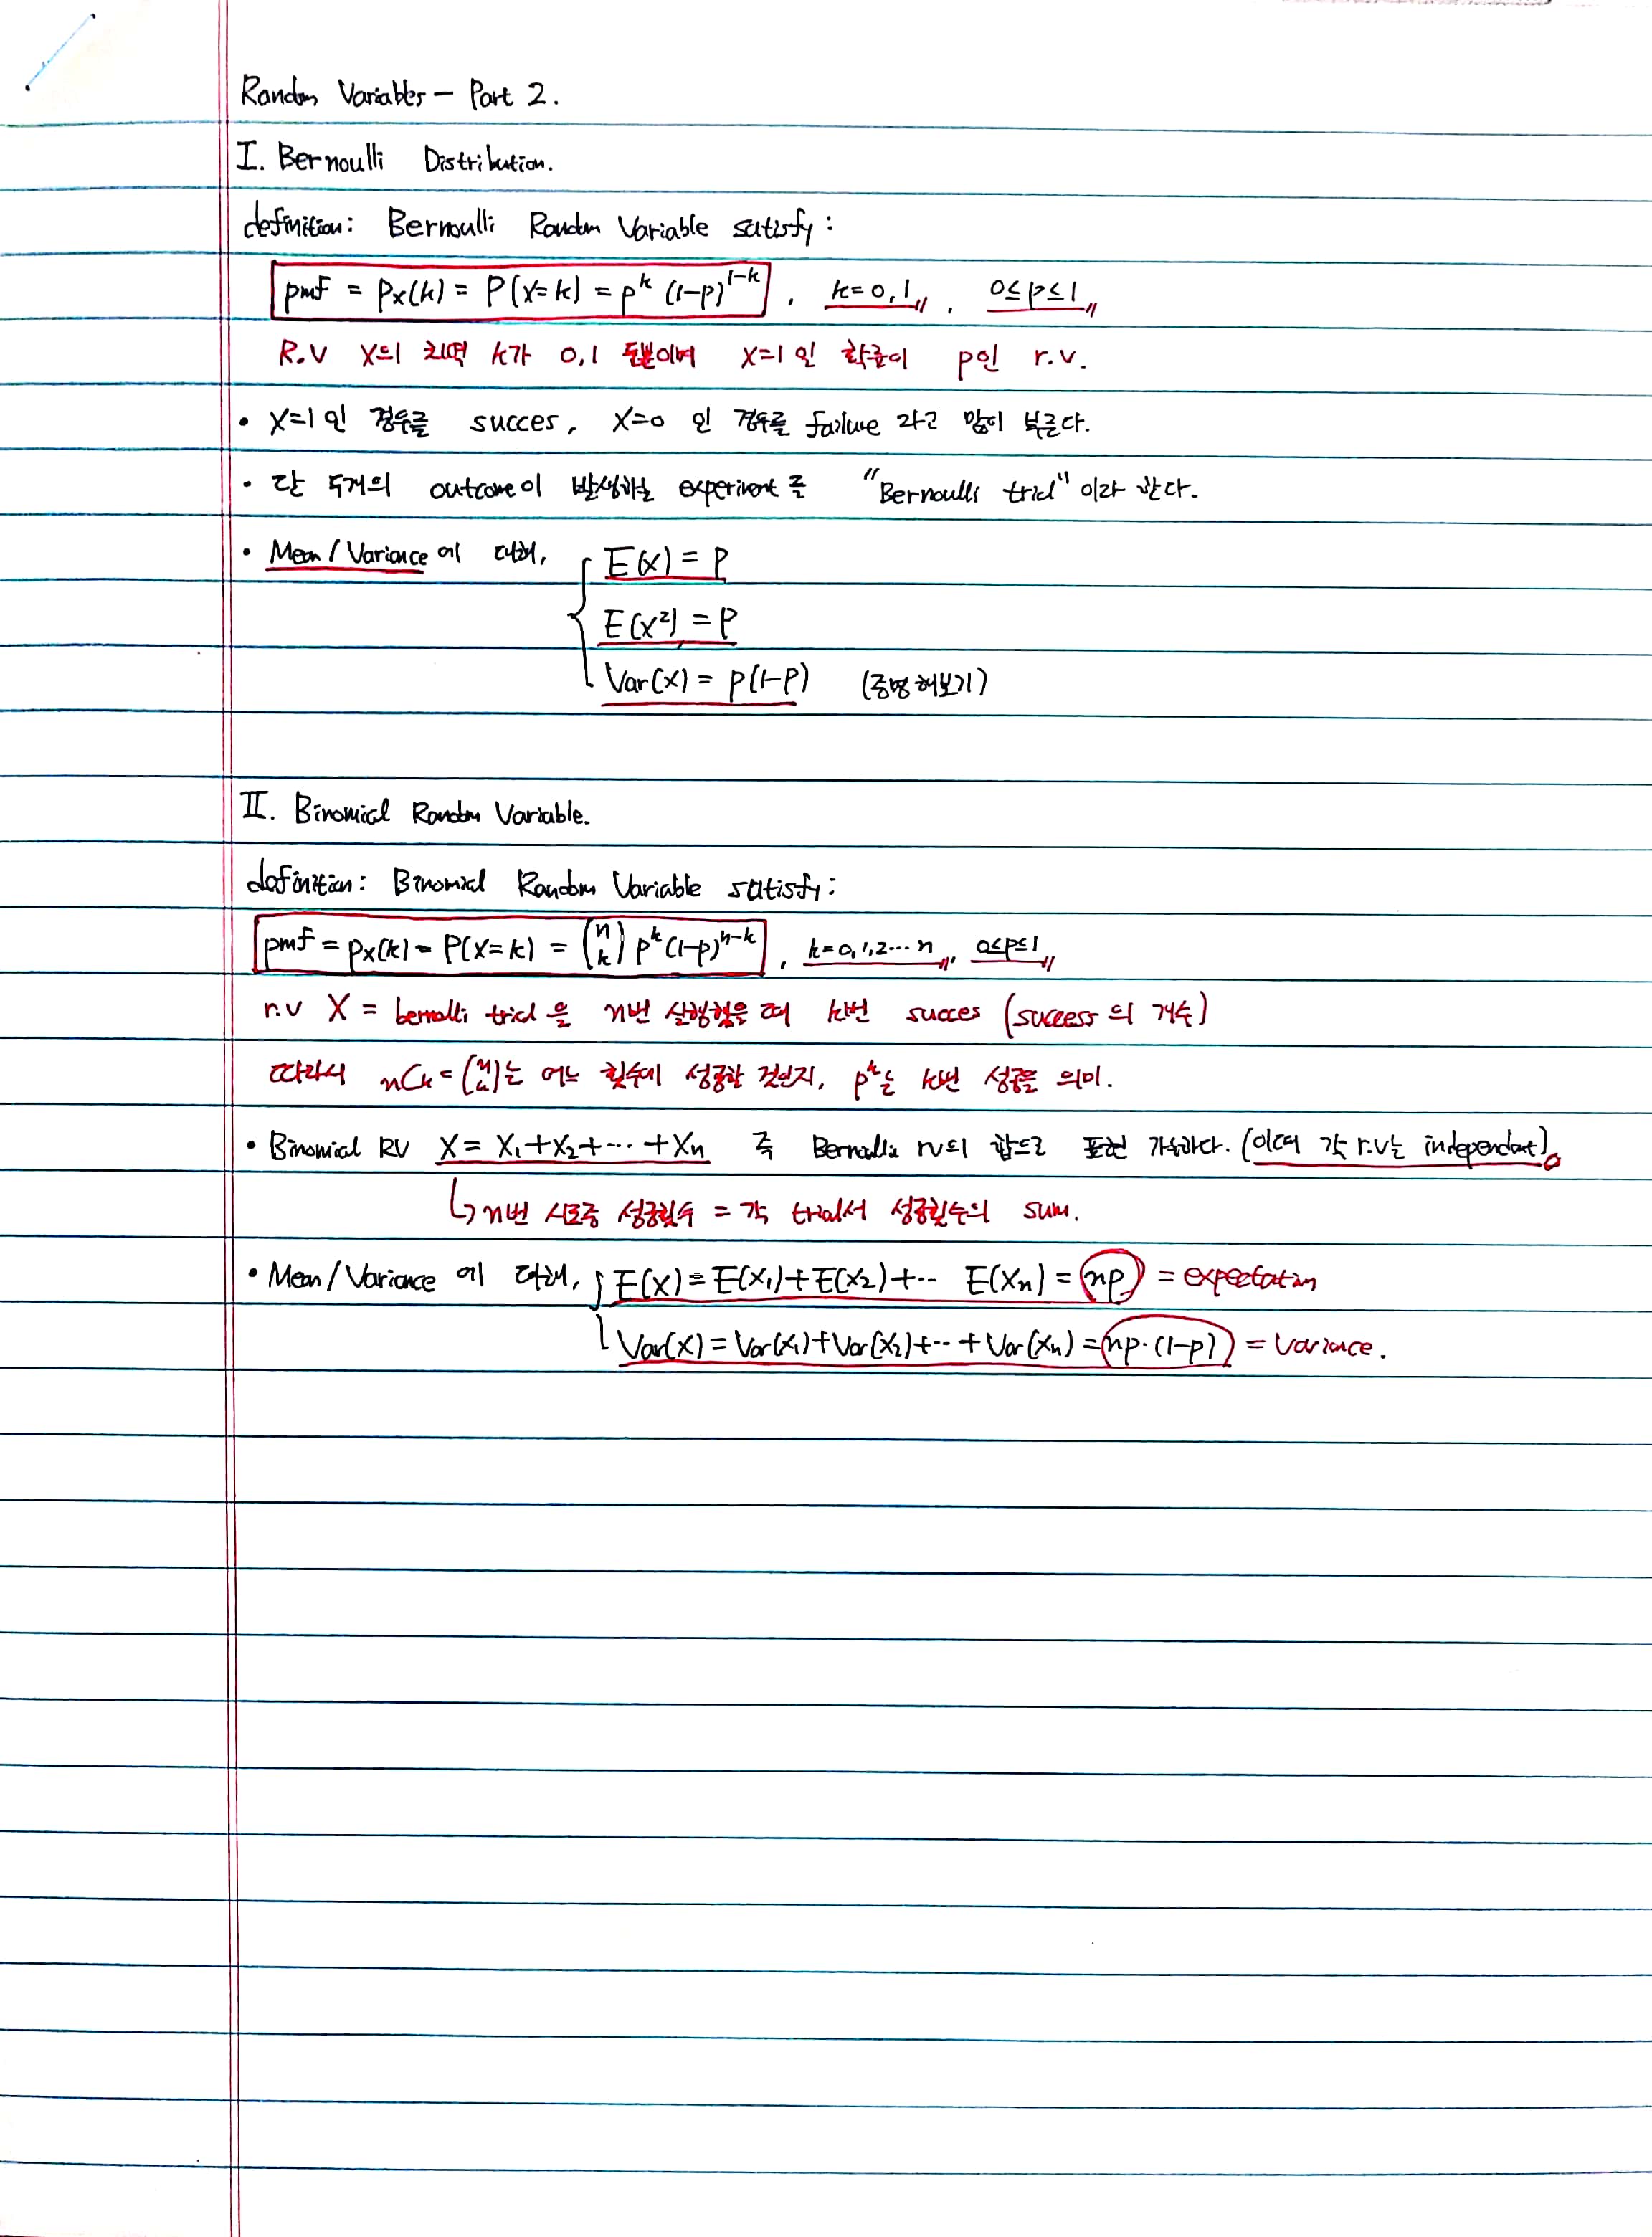 Random Variables – Part 2.
I. Bernoulli Distribution.
definition: Bernoulli Random Variable satisfy:
pmf = Px(k) = P(X=k) = p^k (1-p)^{1-k} , k=0,1 , 0≤p≤1
R.V X의 치역 k가 0,1 둘뿐이며 X=1인 확률이 p인 r.v.
• X=1인 경우를 succes, X=0 인 경우를 failure 라고 많이 부른다.
• 단 두개의 outcome이 발생하는 experiment 를 "Bernoulli trial" 이라 한다.
• Mean / Variance 에 대해, E(X) = P
E(X²) = P
Var(X) = p(1-p) (증명해보기)
II. Binomial Random Variable.
definition: Binomial Random Variable satisfy:
pmf = Px(k) = P(X=k) = (n k) p^k (1-p)^{n-k} , k=0,1,2⋯n, 0≤p≤1
r.v X = bernolli trial 을 n번 실행했을 때 k번 succes (success의 개수)
따라서 nCk = (n k)는 어느 횟수에 성공할 것인지, p^k는 k번 성공을 의미.
• Binomial RV X = X₁+X₂+⋯+Xn 즉 Bernolli rv의 합으로 표현 가능하다. (이때 각 r.v는 independent)。
↳ n번 시도중 성공횟수 = 각 trial서 성공횟수의 sum.
• Mean / Variance 에 대해, E(X) = E(X₁)+E(X₂)+⋯ E(Xn) = np = expectation
Var(X) = Var(X₁)+Var(X₂)+⋯+Var(Xn) = np·(1-p) = Variance.